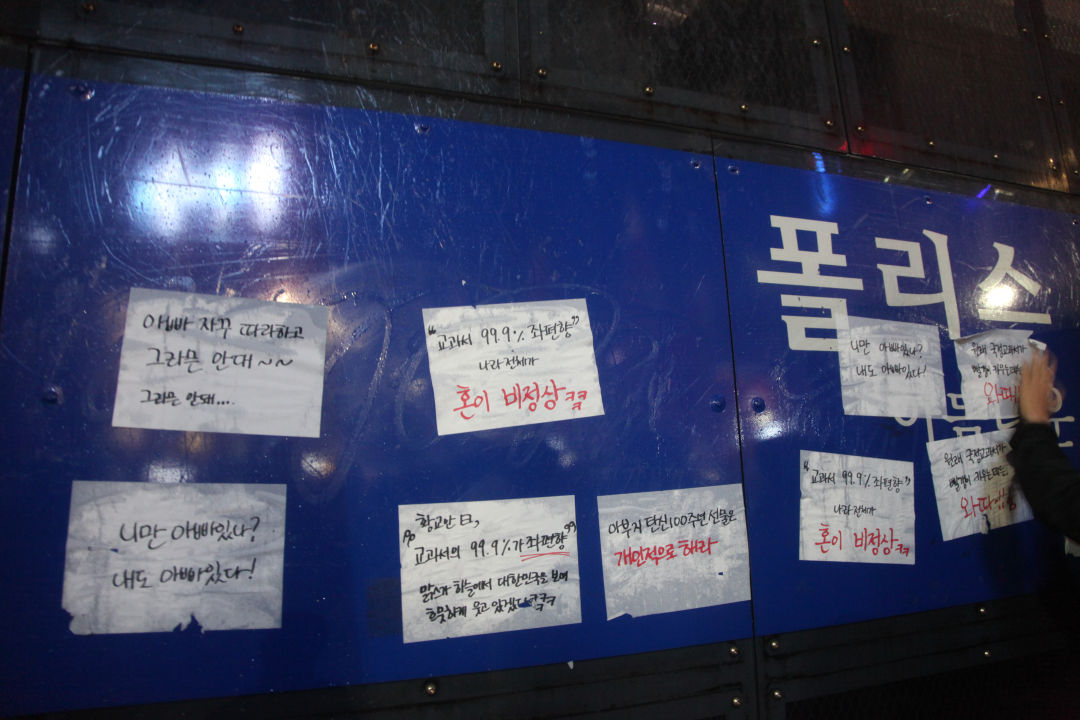 아빠 자꾸 따라하고
그라믄 안대~~
그라믄 안돼....
"교과서 99.9% 좌편향"
나라 전체가
혼이 비정상 ㅋㅋ
니만 아빠있나?
내도 아빠있다!
황교안 曰,
"교과서의 99.9%가 좌편향"
맑스가 하늘에서 대한민국을 보며
흐뭇하게 웃고 있겠다 ㅋㅋㅋ
아부지 탄신100주년 선물은
개인적으로 해라
폴리스
니만 아빠있나?
내도 아빠있다!
원래 국정교과서가
"교과서 99.9% 좌편향"
나라 전체가
혼이 비정상 ㅋㅋ
원래 국정교과서가